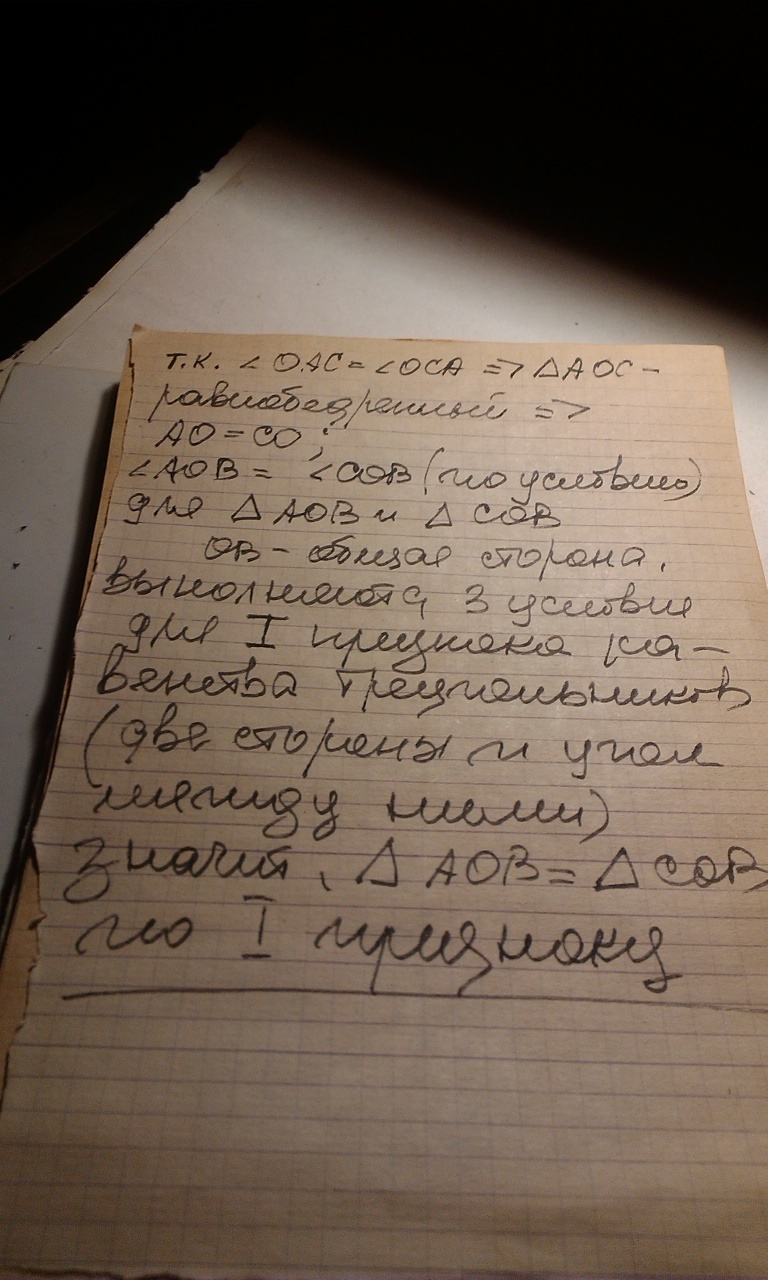 т.к. ∠OAC = ∠OCA => △AOC –
равнобедренный =>
AO = CO;
∠AOB = ∠COB (по условию)
для △AOB и △COB
OB – общая сторона.
выполняются 3 условия
для I признака ра–
венства треугольников
(две стороны и угол
между ними)
значит, △AOB = △COB
по I признаку